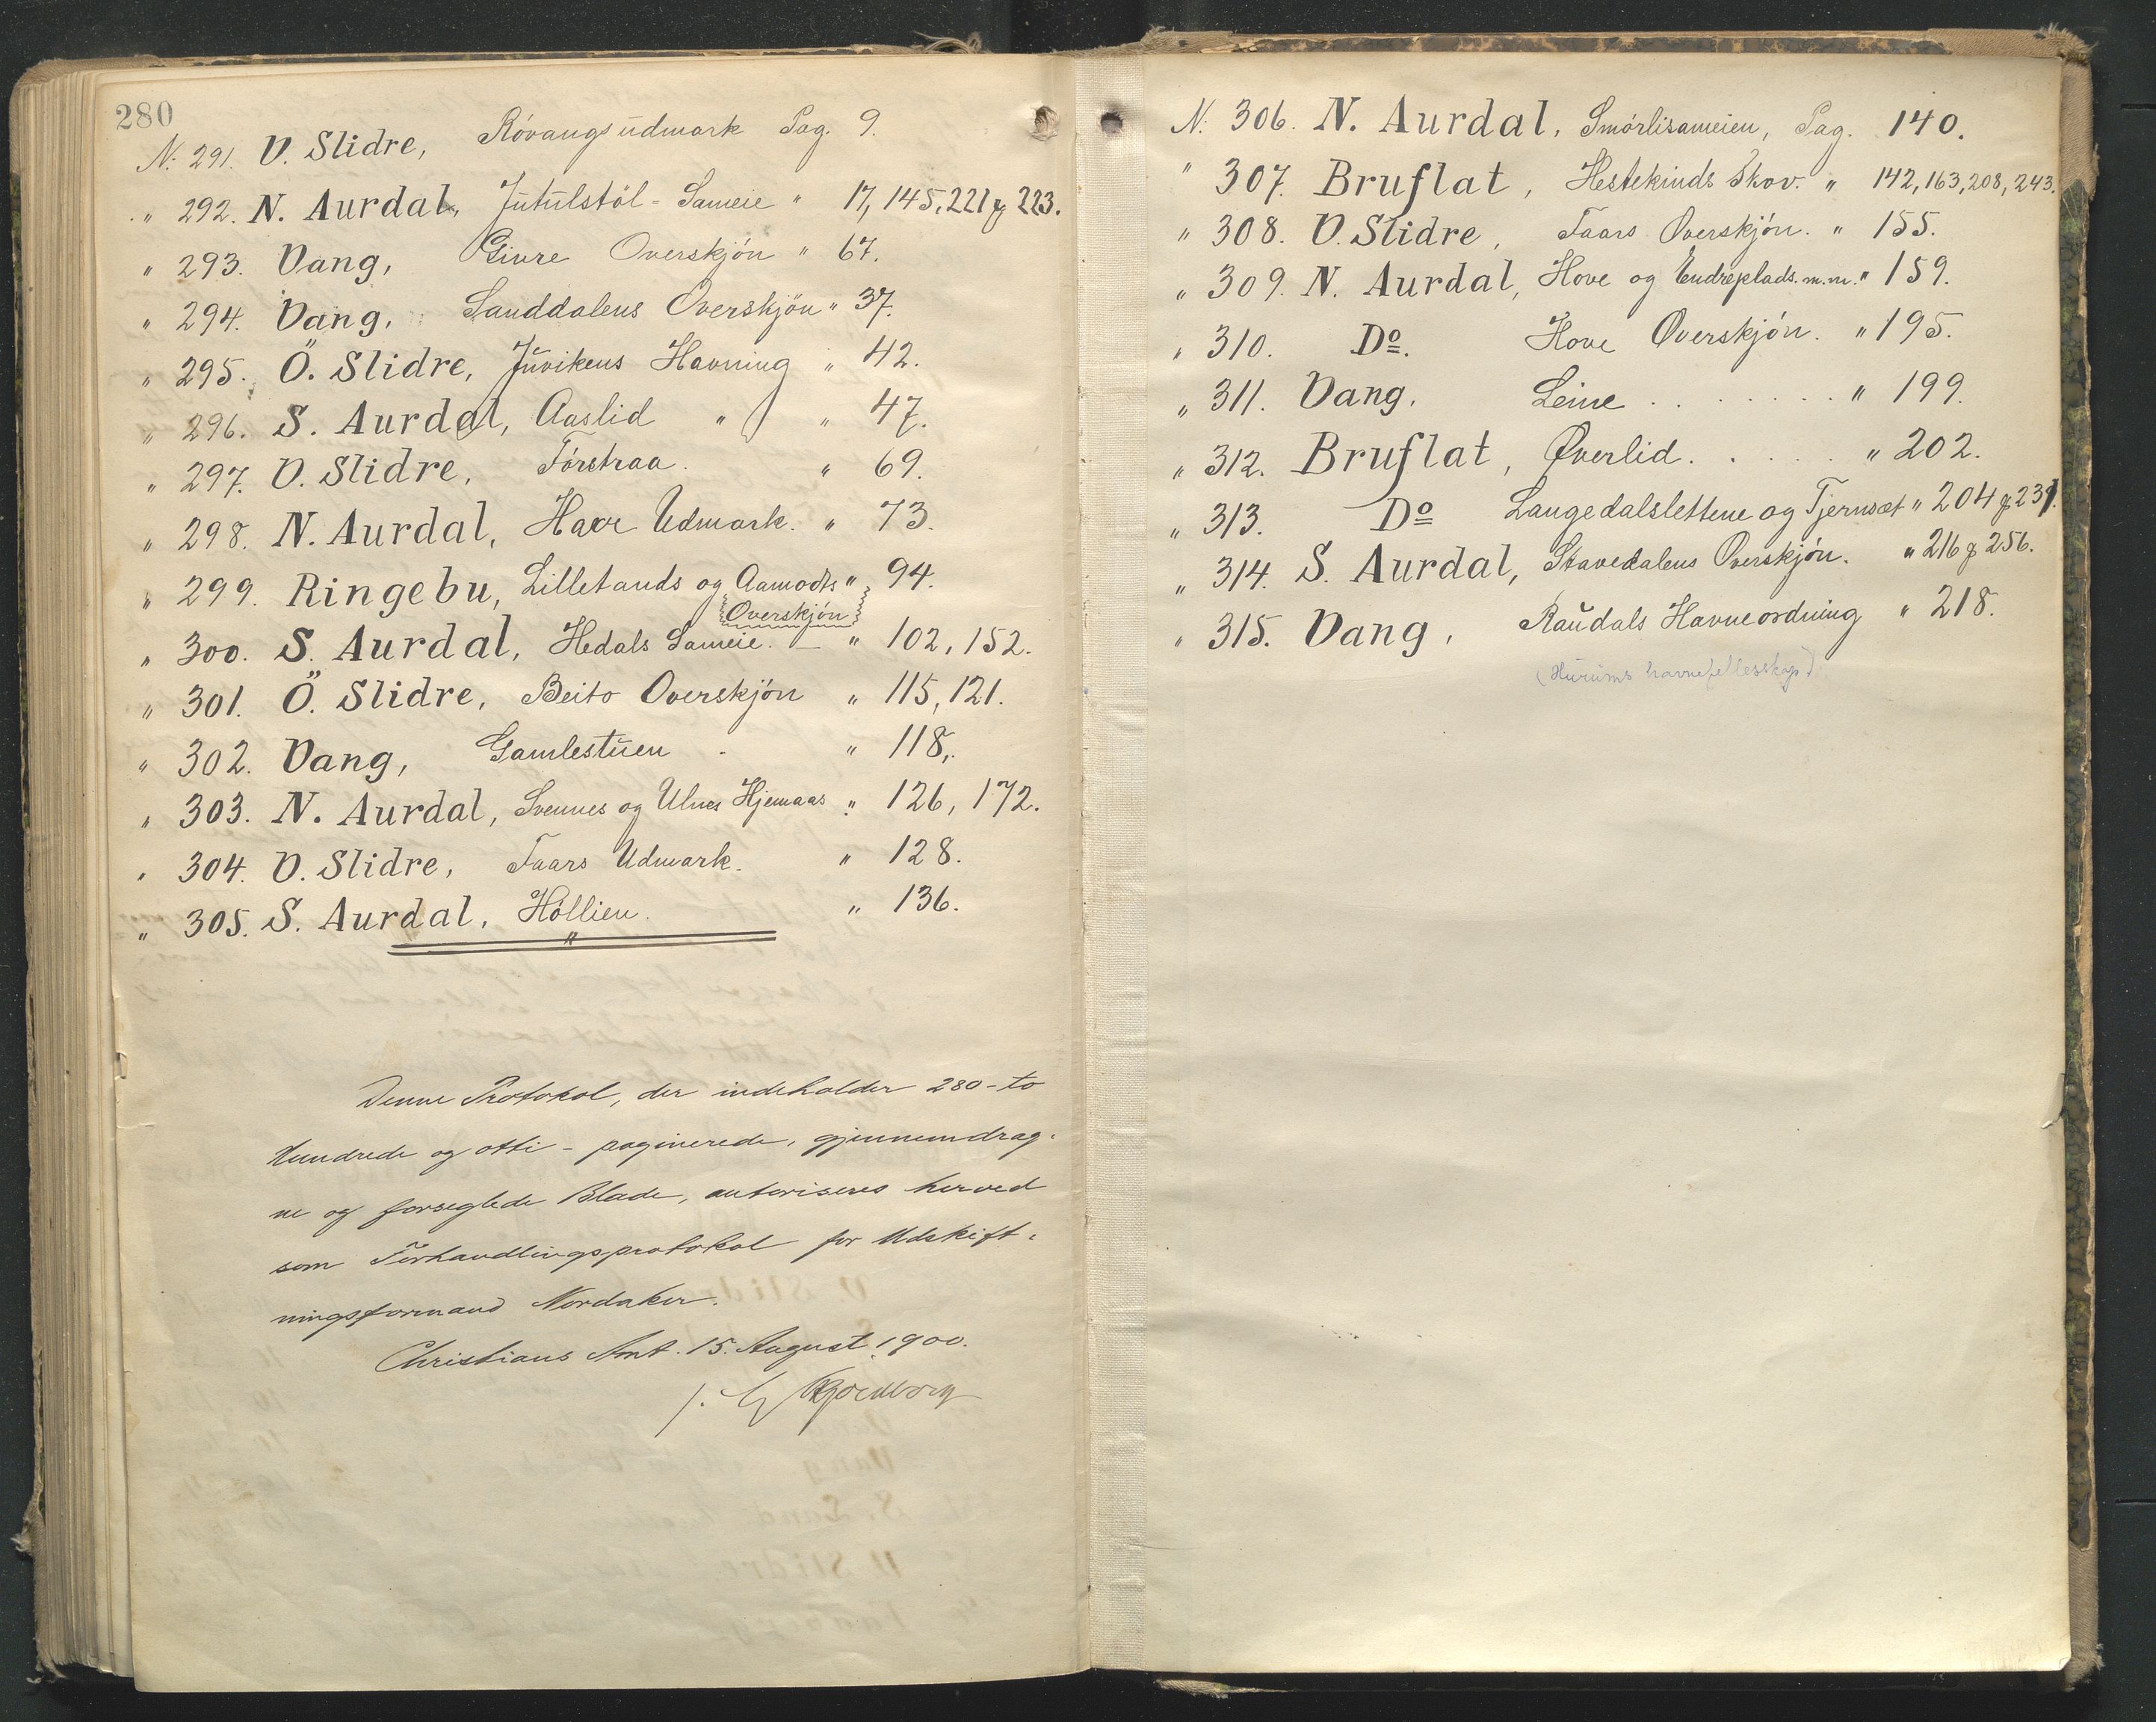 280
N: 291. V. Slidre, Róvangsudmark Pag. 9.
" 292. N. Aurdal, Jutulstöl - Sameie " 17, 145, 221 & 223.
" 293. Vang, Givre Overskjón " 67.
" 294. Vang, Sanddalens Overskjön " 37.
" 295. Ö. Slidre, Juvikens Havning " 42.
" 296. S. Aurdal, Aaslid " " 47.
" 297. V. Slidre, Fórstraa. " 69.
" 298. N. Aurdal, Udmark. " 73.
" 299. Ringebu, Lilletands og Aamodts " 94.
Overskjón
" 300. S. Aurdal, Hedals Sameie. — " 102, 152.
" 301. Ö. Slidre, Beito Overskjón " 115, 121.
" 302. Vang, Gamlestuen . " 118,.
" 303. N. Aurdal, Svennes og Ulnes Hjemaas " 126, 172.
" 304. V. Slidre, Faars Udmark. " 128.
" 305. S. Aurdal, Hóllien. " 136.
Denne Protokol, der indeholder 280 - to
Hundrede og otti - paginerede, gjennemdrag-
ne og forseglede Blade, autoriseres herved
som Forhandlingsprotokol for Udskift-
ningsformand Nordaker.
Christians Amt. 15. August 1900.
N: 306. N. Aurdal, Smórlisameien, Pag. 140.
" 307. Bruflat, Hestekinds Skov. " 142, 163, 208, 243.
" 308. V. Slidre, Faars Overskjón. " 155.
" 309. N. Aurdal, Hove og Endreplads. m.m. " 159.
" 310. Do. Hove Overskjón. " 195.
" 311. Vang, Leine . . . . . . . " 199.
" 312. Bruflat, Øverlid. . . . . " 202.
" 313. Do Langedalslettene og Tjernsæt " 204 &
" 314. S. Aurdal, Stavedalens Overskjón. " 216 & 256.
" 315. Vang, Raudals Havneordning " 218.
(Hurums havnefellesskap)